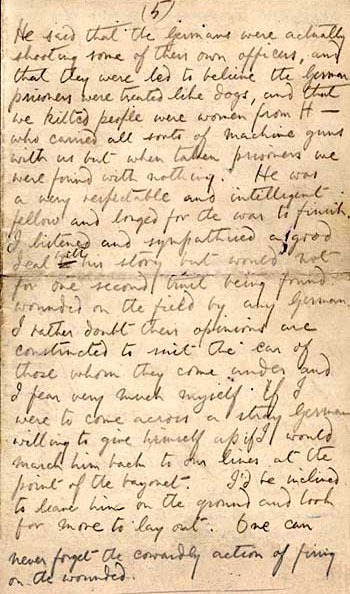 (5)
He said that the Germans were actually
shooting some of their own officers, and
that they were led to believe the German
prisoners were treated like dogs, and that
we kilted people were women from H—
who carried all sorts of machine guns
with us but when taken prisoners we
were found with nothing. He was
a very respectable and intelligent
fellow and longed for the war to finish.
I listened and sympathised a good
deal with his story but would not
for one second trust being found
wounded on the field by any German.
I rather doubt their opinions are
constructed to suit the ear of
those whom they come under and
I fear very much myself if I
were to come across a stray German
willing to give himself up if I would
march him back to our lines at the
point of the bayonet. I'd be inclined
to leave him on the ground and look
for more to lay out. One can
never forget the cowardly action of firing
on the wounded.